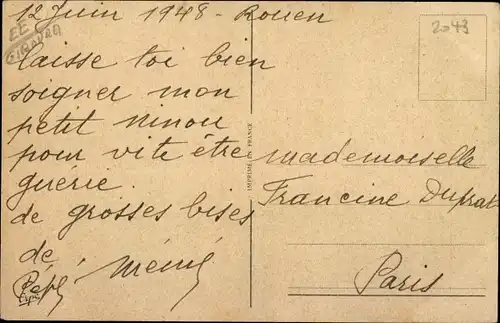 12 Juin 1948 - Rouen
2043
laisse toi bien
soigner mon
petit ninou
pour vite être
guérie.
de grosses bises
de
Pépé, Mémé
IMPRIMÉ EN FRANCE
Mademoiselle
Francine Duprat
Paris